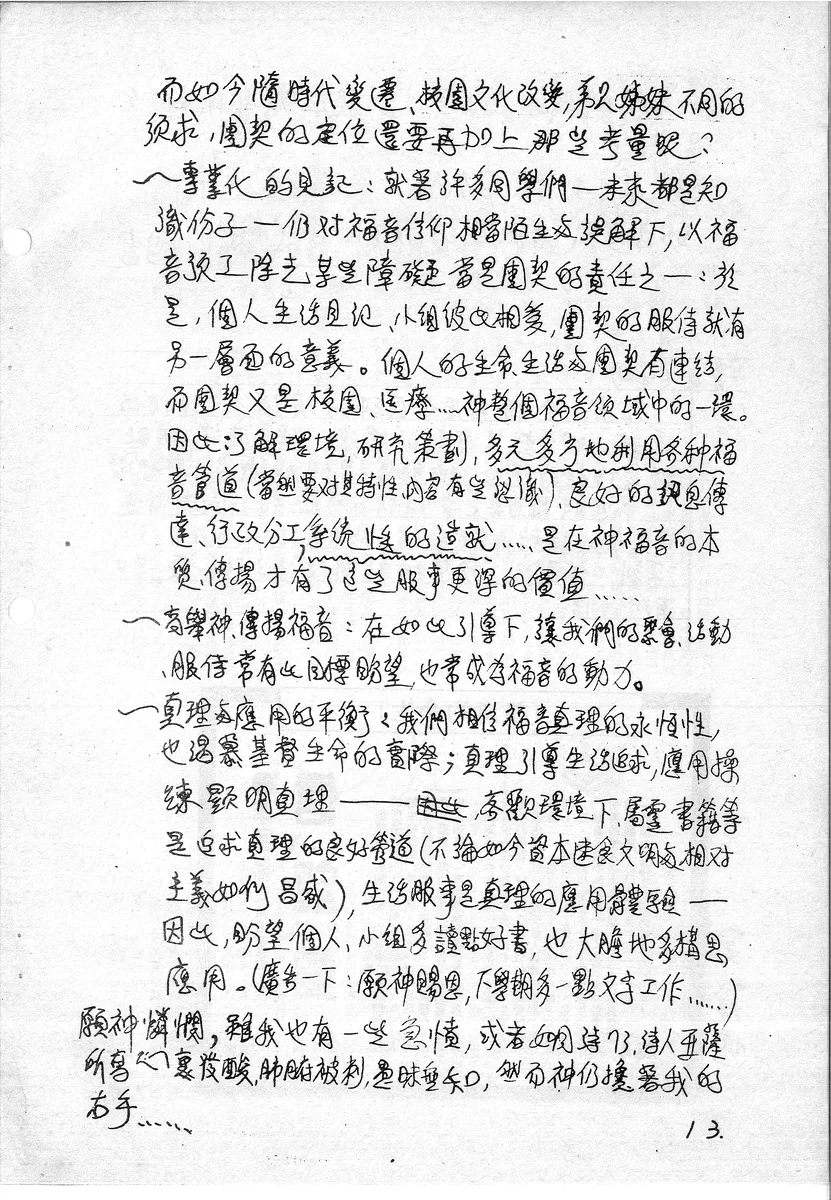 而如今隨時代變遷、校園文化改變,弟兄姊妹不同的
須求,團契的定位還要再加上那些考量呢?
專業化的見証:就著許多同學們—未來都是知
識份子—仍对福音信仰相當陌生与誤解下,以福
音預工除去某些障礙当是團契的責任之一:於
是,個人生活見証、小組彼此相愛,團契的服侍就有
另一層面的意義。個人的生命生活与團契有連結,
而團契又是校園、医療……神整個福音領域中的一環。
因此:了解環境,研究策劃,多元多方地利用各种福
音管道(當然要对其特性、內容有些認識)、良好的訊息傳
達、行政分工,系統性的造就……是在神福音的本
質傳揚才有了這些服事更深的價值……
高舉神、傳揚福音:在如此引導下,讓我們的聚會、活動
、服侍常有此目標盼望,也常成為福音的動力。
真理与應用的平衡:我們相信福音真理的永恆性,
也渴慕基督生命的實際;真理引導生活追求,應用操
練顯明真理——客觀環境下,屬靈書籍等
是追求真理的良好管道(不論如今資本速食文明与相对
主義如何昌盛),生活服事是真理的應用體驗——
因此,盼望個人、小組多讀點好書,也大膽地多構思
應用。(廣告一下:願神賜恩,下學期多一點文字工作……)
願神憐憫,雖我也有一些急憤,或者如同詩73,詩人亞薩
所寫心裏發酸,肺腑被刺,愚昧無知,然而神仍攙著我的
右手……
13.